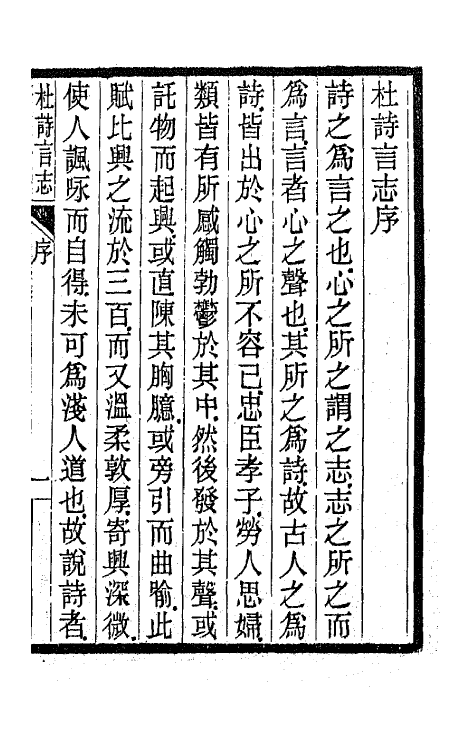 杜詩言志序
詩之爲言之也心之所之謂之志志之所之而
爲言言者心之聲也其所之爲詩故古人之爲
詩皆出於心之所不容已忠臣孝子勞人思婦
類皆有所感觸勃鬱於其中然後發於其聲或
託物而起興或直陳其胸臆或旁引而曲喻此
賦比興之流於三百而又溫柔敦厚寄興深微
使人諷咏而自得未可爲淺人道也故說詩者
杜詩言志 序 一